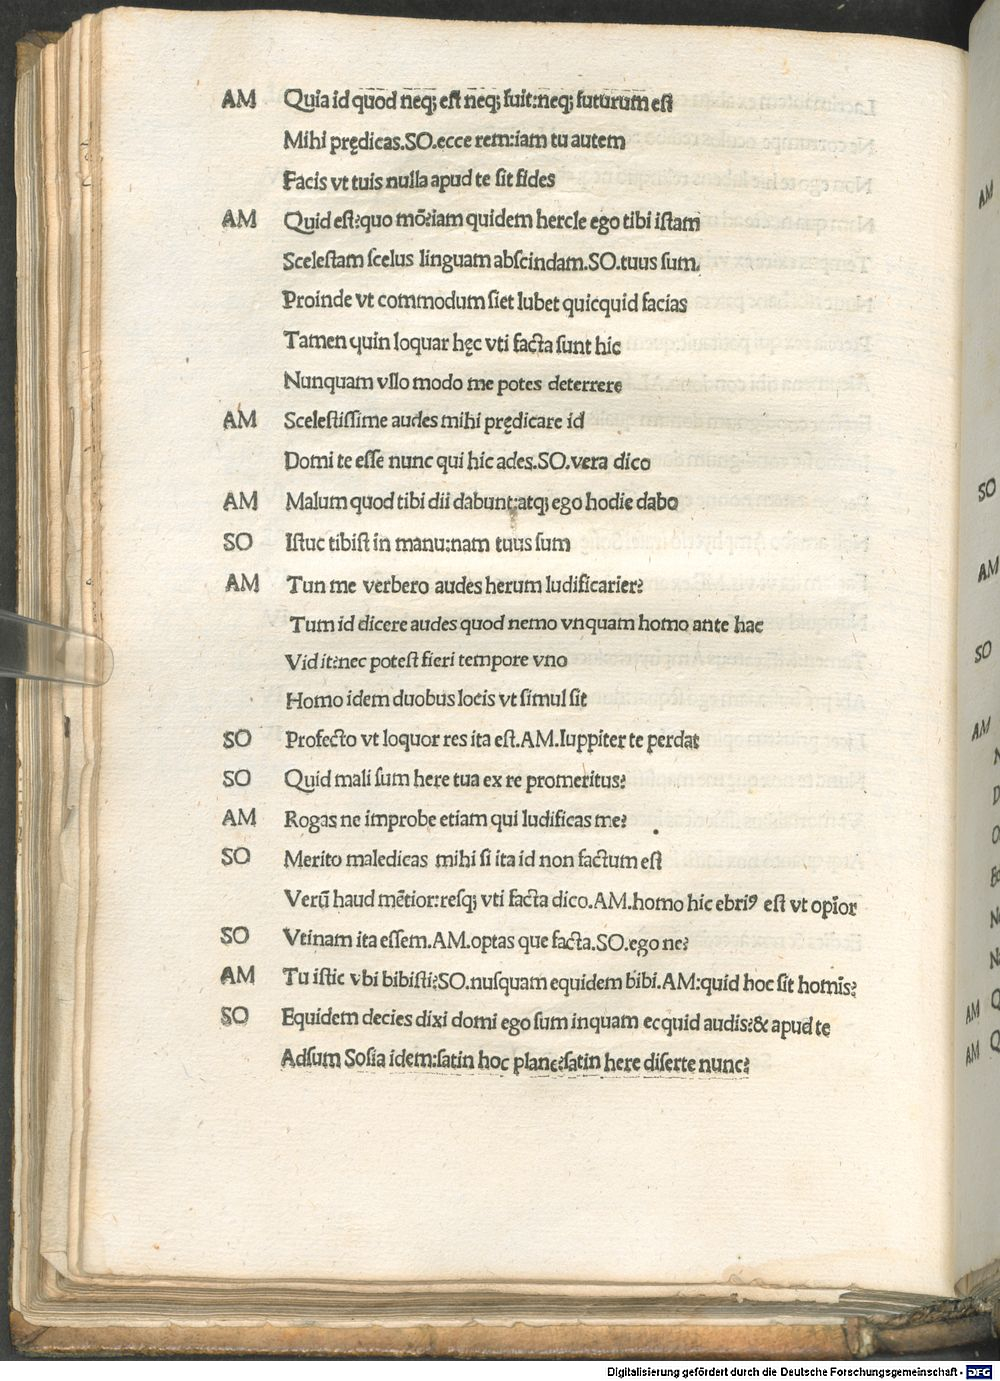 AM Quia id quod neq; est neq; fuit:neq; futurum est
Mihi prędicas.SO.ecce rem:iam tu autem
Facis vt tuis nulla apud te sit fides
AM Quid est?quo mō?iam quidem hercle ego tibi istam
Scelestam scelus linguam abscindam.SO.tuus sum.
Proinde vt commodum siet lubet quicquid facias
Tamen quin loquar hęc vti facta sunt hic
Nunquam vllo modo me potes deterrere
AM Scelestissime audes mihi prędicare id
Domi te esse nunc qui hic ades.SO.vera dico
AM Malum quod tibi dii dabunt:atq; ego hodie dabo
SO Istuc tibist in manu:nam tuus sum
AM Tun me verbero audes herum ludificarier?
Tum id dicere audes quod nemo vnquam homo ante hac
Vid it:nec potest fieri tempore vno
Homo idem duobus locis vt simul sit
SO Profecto vt loquor res ita est.AM.Iuppiter te perdat
SO Quid mali sum here tua ex re promeritus?
AM Rogas ne improbe etiam qui ludificas me?
SO Merito maledicas mihi si ita id non factum est
Verū haud mētior:resq; vti facta dico.AM.homo hic ebriꝰ est vt opīor
SO Vtinam ita essem.AM.optas que facta.SO.ego ne?
AM Tu istic vbi bibisti?SO.nusquam equidem bibi.AM:quid hoc sit homīs?
SO Equidem decies dixi domi ego sum inquam ecquid audis?& apud te
Adsum Sosia idem:satin hoc plane?satin here diserte nunc?
AM
SO
AM
SO
AM
AM
AM
Digitalisierung gefördert durch die Deutsche Forschungsgemeinschaft - DFG